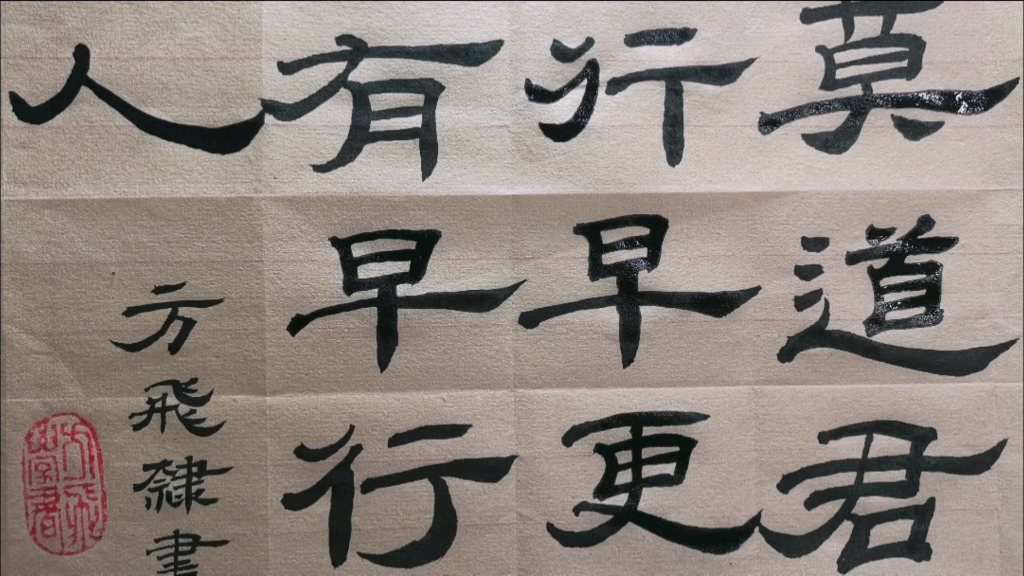 莫道君
行早更
有早行
人
方飛隸書